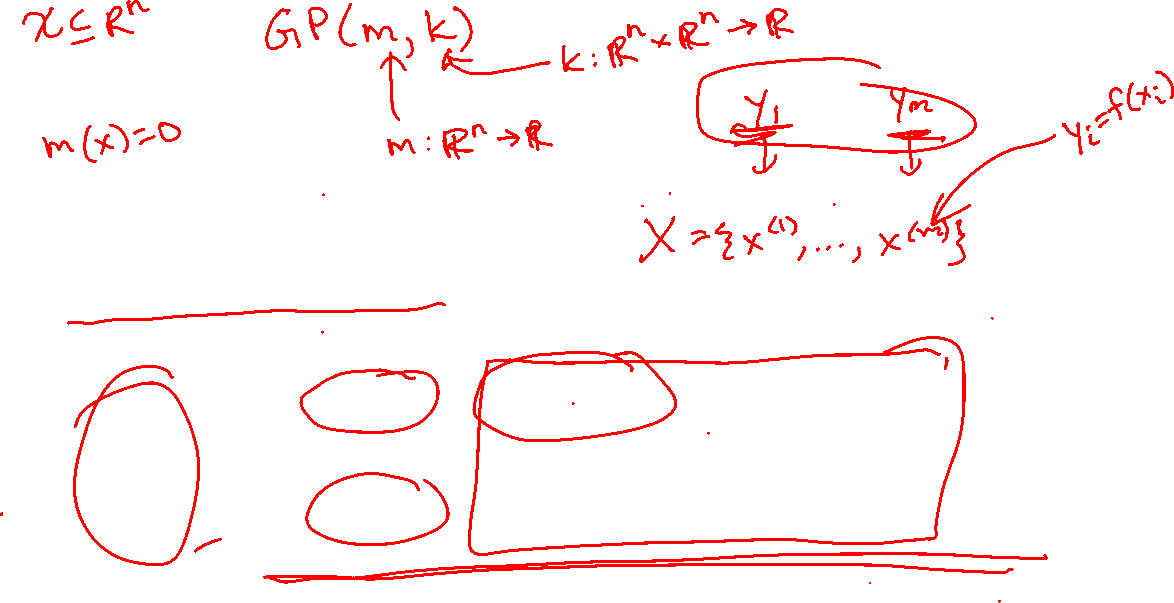 x ⊆ ℝⁿ
GP(m, k)
k : ℝⁿ × ℝⁿ → ℝ
m(x) = 0
m : ℝⁿ → ℝ
y₁ yₘ
yᵢ = f(xᵢ)
X = {x⁽¹⁾, ..., x⁽ᵐ⁾}